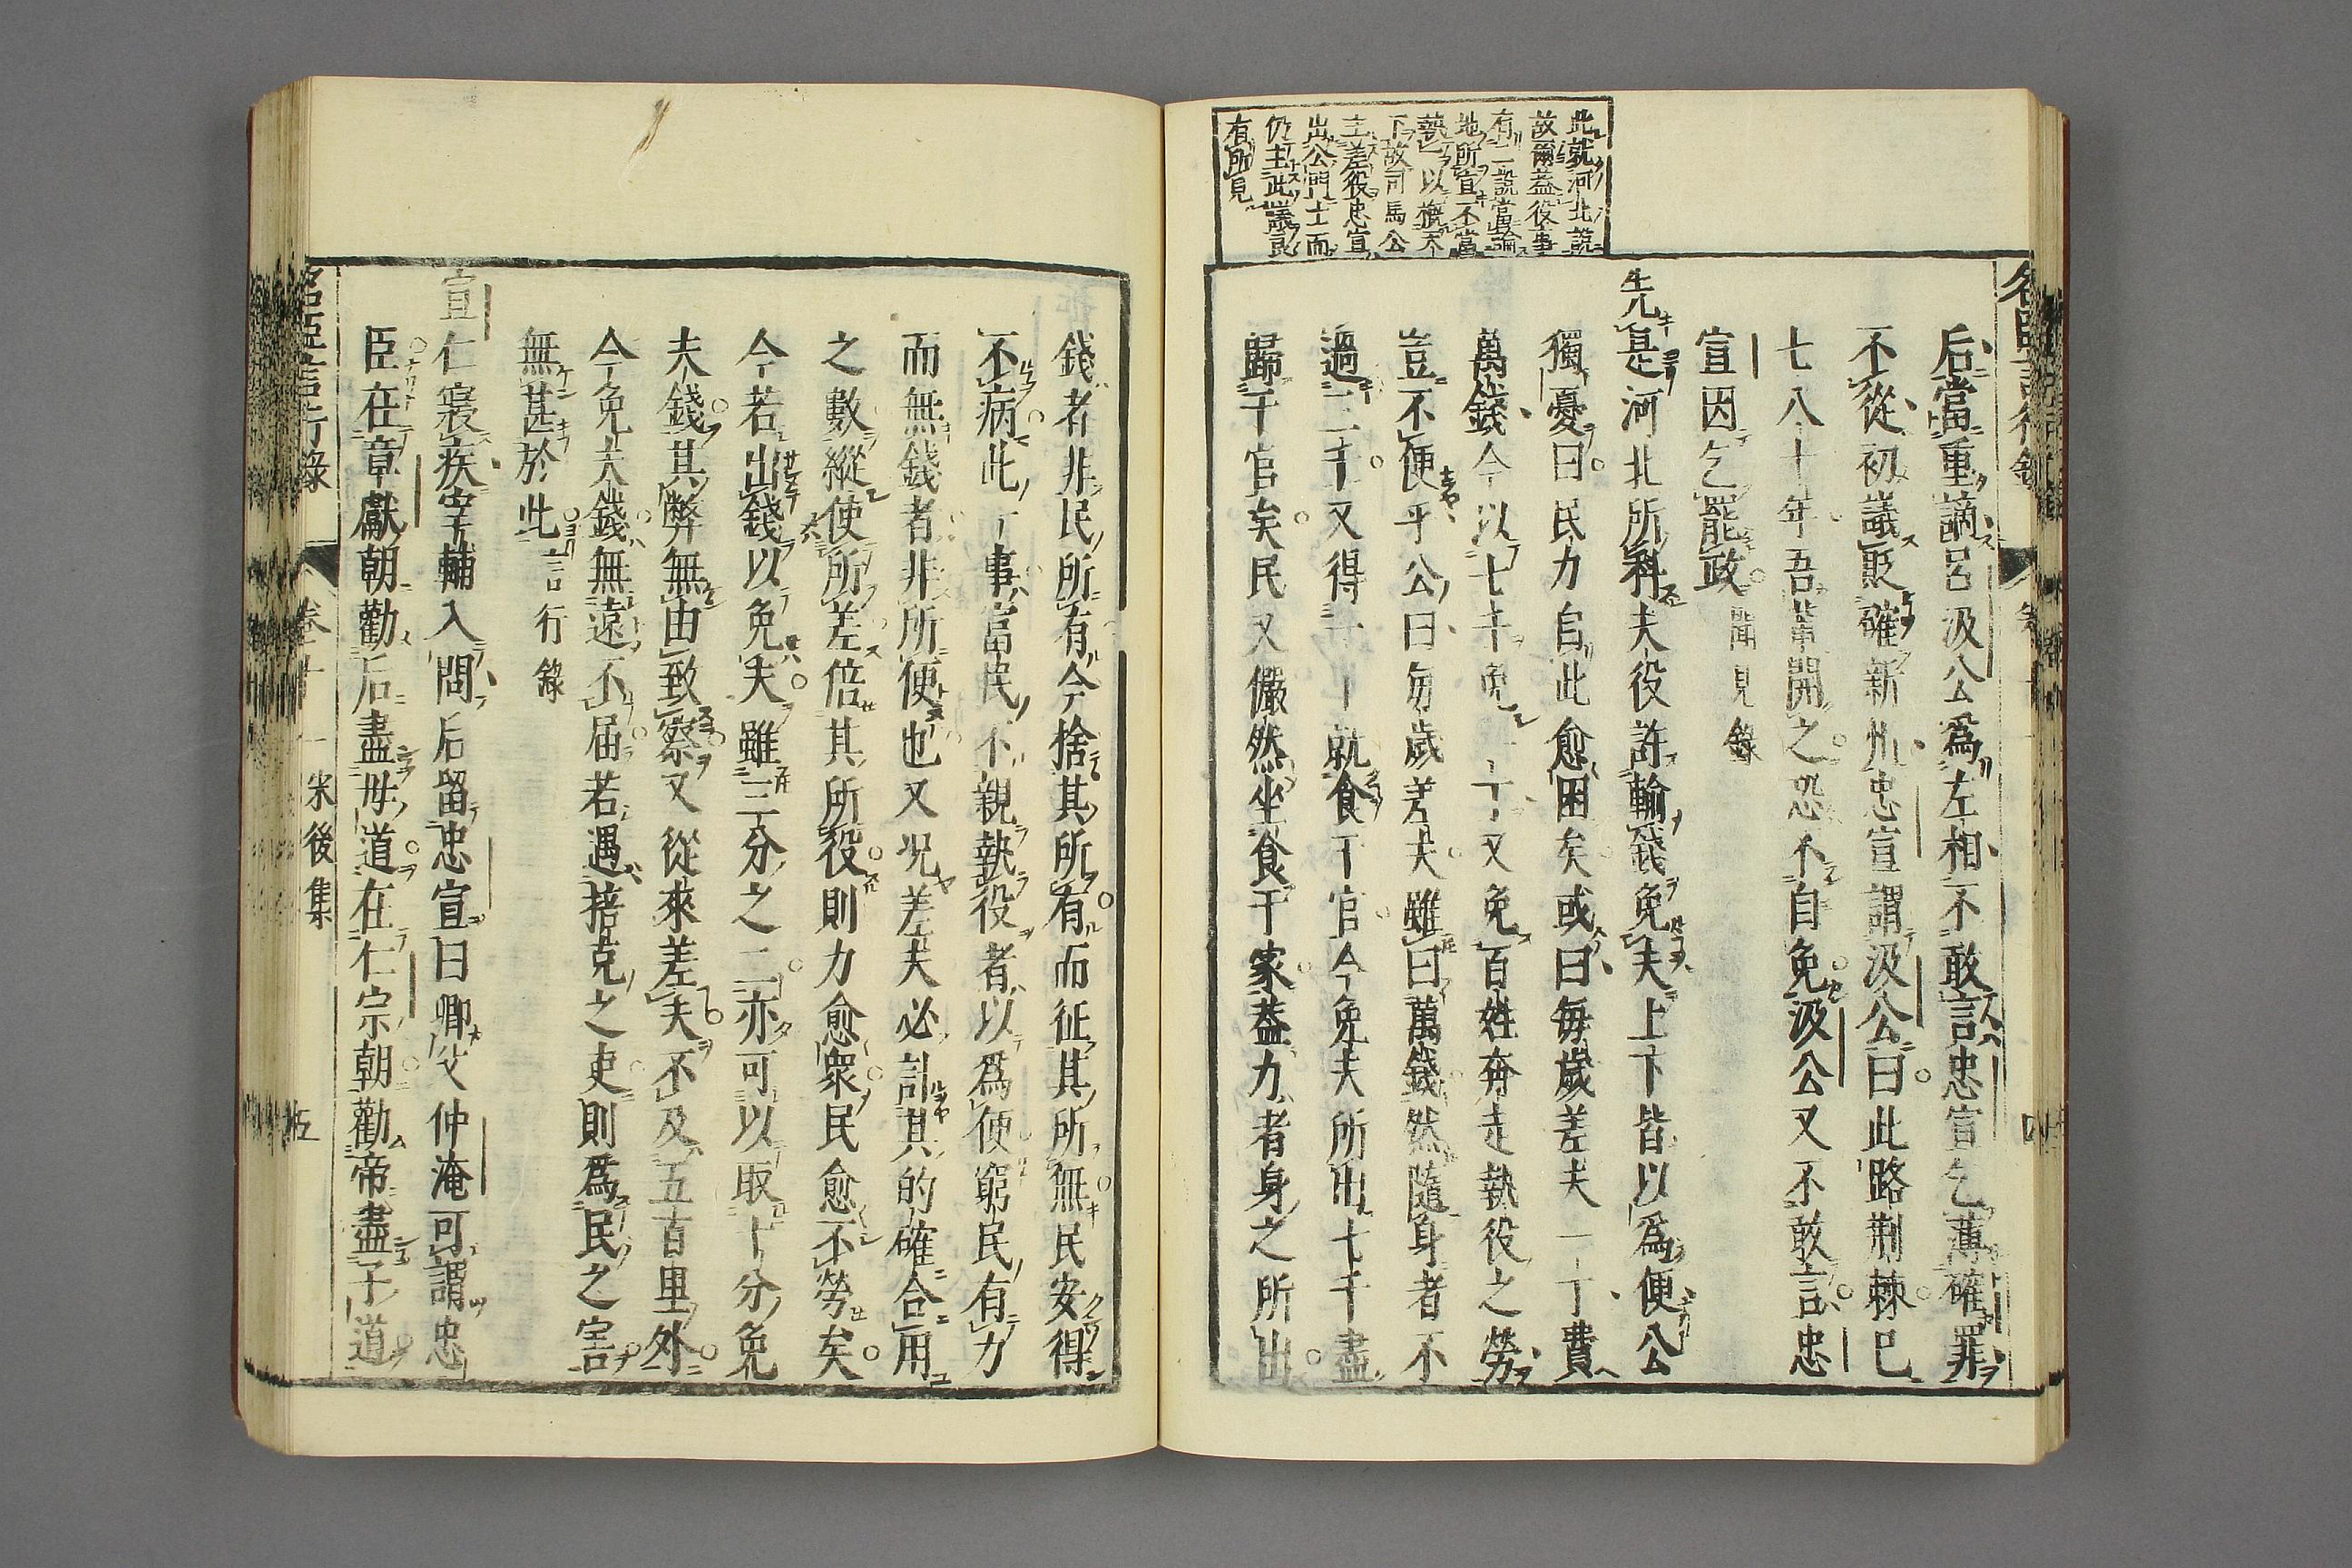 此就河北說
故爾蓋役事
有二說當論
地所宜不當
執一以概天
下故司馬公
主差役忠宣
出公門士而
仍主此議良
有所見
后當重謫呂汲公爲左相不敢言忠宣乞薄確罪
不從初議貶確新州忠宣謂汲公曰此路荆棘已
七八十年吾輩開之恐不自免汲公又不敢言忠
宣因乞罷政 聞見錄
先是河北所科夫役許輸錢免夫上下皆以爲便公
獨憂曰民力自此愈困矣或曰每歲差夫一丁費
萬錢今以七千免一丁又免百姓奔走執役之勞
豈不便乎公曰每歲差夫雖曰萬錢然隨身者不
過二千又得一丁就食于官今免夫所出七千盡
歸于官矣民又儼然坐食于家蓋力者身之所出
錢者非民所有今捨其所有而征其所無民安得
不病此一事當民不親執役者以爲便窮民有力
而無錢者非所便也又况差夫必計其的確合用
之數縱使所差倍其所役則力愈衆民愈不勞矣
今若出錢以免夫雖三分之二亦可以取十分免
夫錢其弊無由致察又從來差夫不及五百里外
今免夫錢無遠不届若遇掊克之吏則爲民之害
無甚於此 言行錄
宣仁寢疾宰輔入問后留忠宣曰卿父仲淹可謂忠
臣在章獻朝勸后盡母道在仁宗朝勸帝盡子道
名臣言行錄 卷十一 宋後集 五